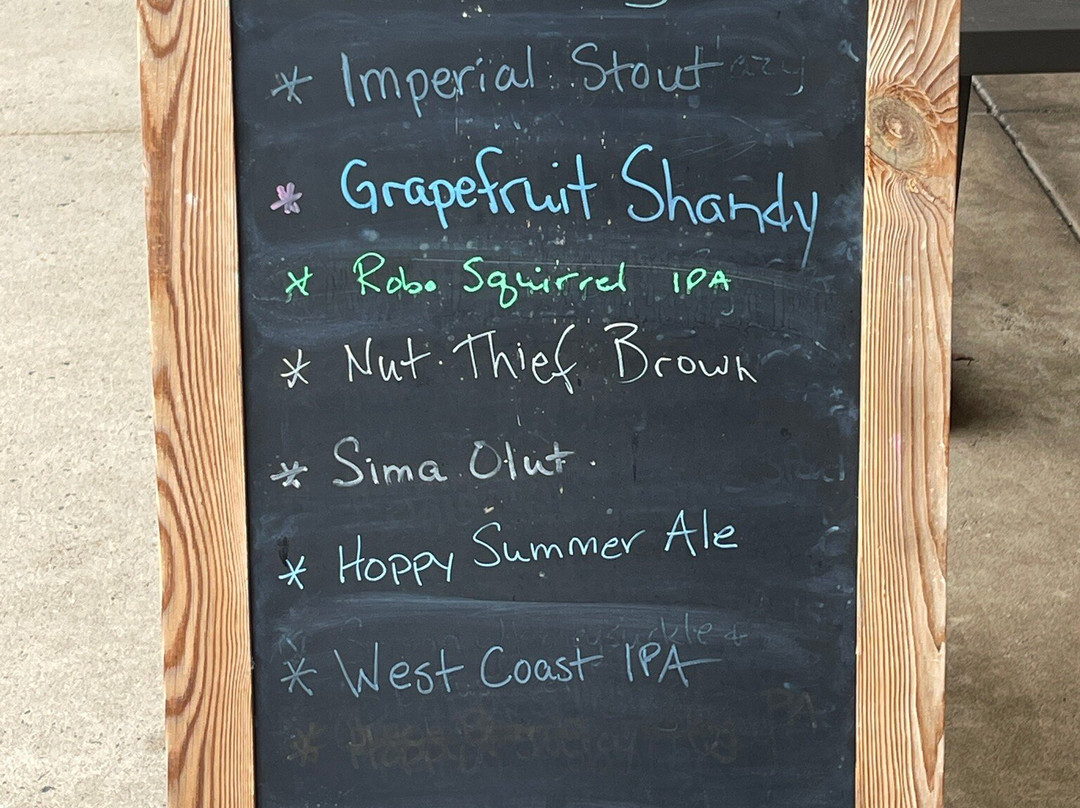 * Imperial Stout
* Grapefruit Shandy
* Robo Squirrel IPA
* Nut Thief Brown
* Sima Olut
* Hoppy Summer Ale
* West Coast IPA